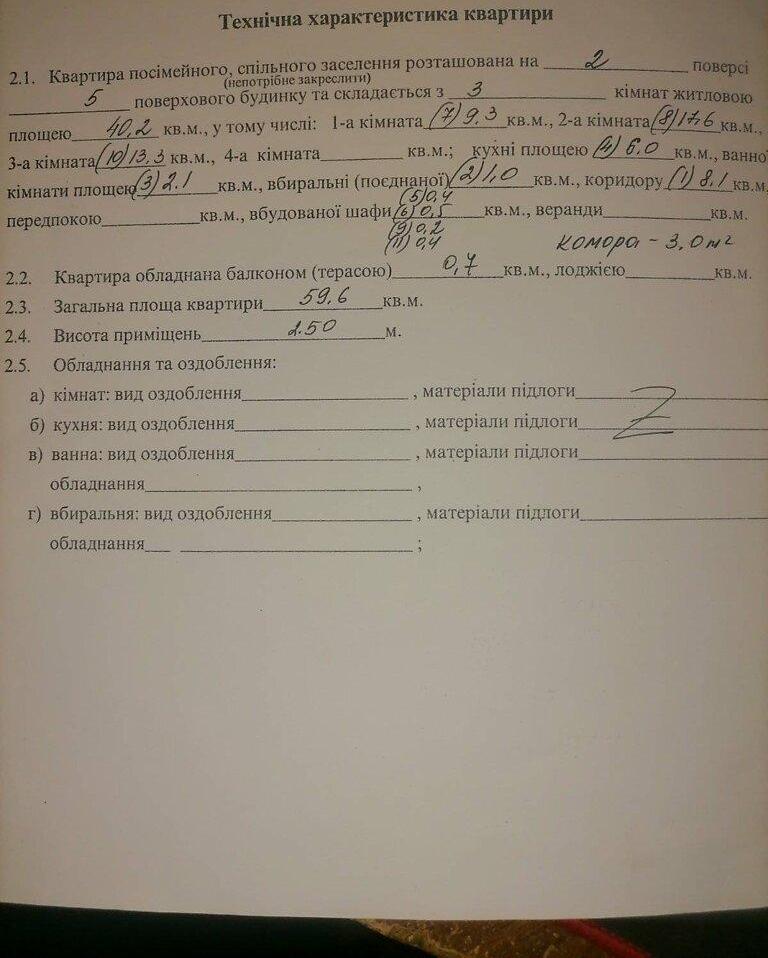 Технічна характеристика квартири
2.1. Квартира посімейного, спільного заселення розташована на 2 поверсі
(непотрібне закреслити)
5 поверхового будинку та складається з 3 кімнат житловою
площею 40,2 кв.м., у тому числі: 1-а кімната (7) 9.3 кв.м., 2-а кімната (8) 17,6 кв.м.,
3-а кімната (10) 13,3 кв.м., 4-а кімната кв.м.; кухні площею (4) 6.0 кв.м., ванної
кімнати площею (3) 2.1 кв.м., вбиральні (поєднаної) (2) 1,0 кв.м., коридору (1) 8.1 кв.м.
(5) 0,4
передпокою кв.м., вбудованої шафи (6) 0,5 кв.м., веранди кв.м.
(9) 0,2
(11) 0,4 комора - 3,0 м²
2.2. Квартира обладнана балконом (терасою) 0,7 кв.м., лоджією кв.м.
2.3. Загальна площа квартири 59.6 кв.м.
2.4. Висота приміщень 2.50 м.
2.5. Обладнання та оздоблення:
а) кімнат: вид оздоблення , матеріали підлоги
б) кухня: вид оздоблення , матеріали підлоги
в) ванна: вид оздоблення , матеріали підлоги
обладнання ,
г) вбиральня: вид оздоблення , матеріали підлоги
обладнання ;